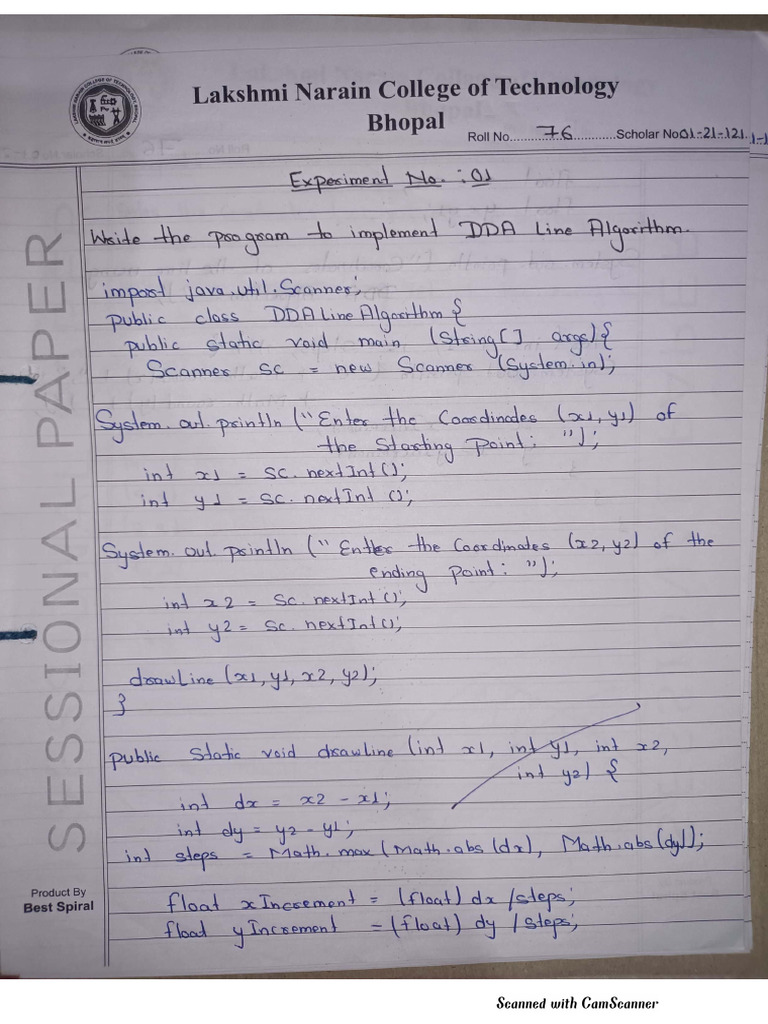 Lakshmi Narain College of Technology
Bhopal
Roll No. 76 Scholar No. 01-21-121
Experiment No. : 01
Write the program to implement DDA Line Algorithm.
import java.util.Scanner;
public class DDALineAlgorithm {
public static void main (String[] args) {
Scanner sc = new Scanner (System.in);
System.out.println ("Enter the Coordinades (x1, y1) of
the Starting Point: ");
int x1 = sc.nextInt();
int y1 = sc.nextInt ();
System.out.println (" Enter the Coordinates (x2, y2) of the
ending Point: ");
int x2 = sc.nextInt();
int y2 = sc.nextInt();
drawLine (x1, y1, x2, y2);
}
public static void drawline (int x1, int y1, int x2,
int y2) {
int dx = x2 - x1;
int dy = y2 - y1;
int steps = Math.max (Math.abs (dx), Math.abs (dy));
float xIncrement = (float) dx / steps;
float yIncrement = (float) dy / steps;
SESSIONAL PAPER
Product By
Best Spiral
Scanned with CamScanner